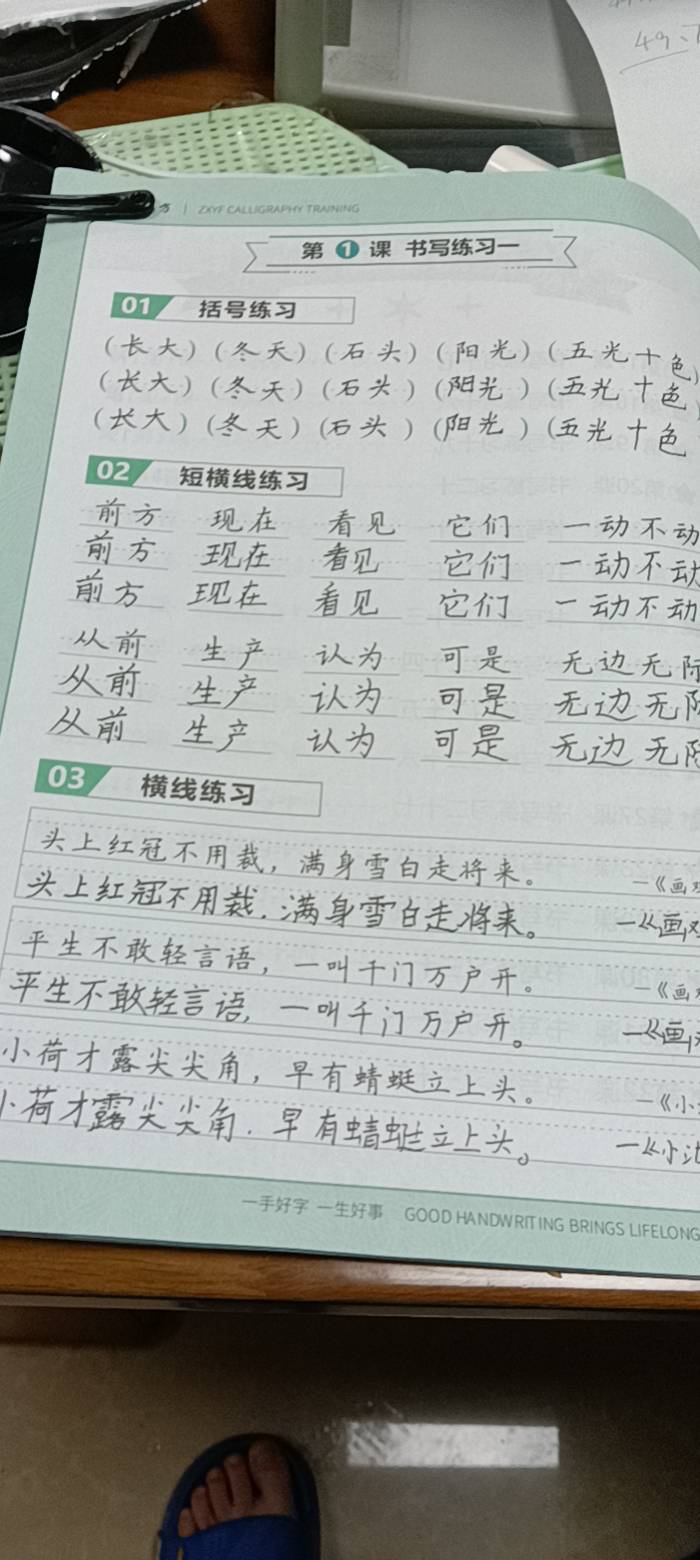 49
方 | ZXYF CALLIGRAPHY TRAINING
第1课 书写练习一
01 括号练习
(长大) (冬天) (石头) (阳光) (五光十色)
(长大) (冬天) (石头) (阳光) (五光十色)
(长大) (冬天) (石头) (阳光) (五光十色
02 短横线练习
前方 现在 看见 它们 一动不动
前方 现在 看见 它们 一动不动
前方 现在 看见 它们 一动不动
从前 生产 认为 可是 无边无际
从前 生产 认为 可是 无边无际
从前 生产 认为 可是 无边无际
03 横线练习
头上红冠不用裁，满身雪白走将来。 —《画
头上红冠不用裁.满身雪白走将来。 —《画
平生不敢轻言语，一叫千门万户开。 —《画
平生不敢轻言语,一叫千门万户开。 —《画
小荷才露尖尖角，早有蜻蜓立上头。 —《小
小荷才露尖尖角.早有蜻蜓立上头。 —《小池
一手好字 一生好事 GOOD HANDWRITING BRINGS LIFELONG